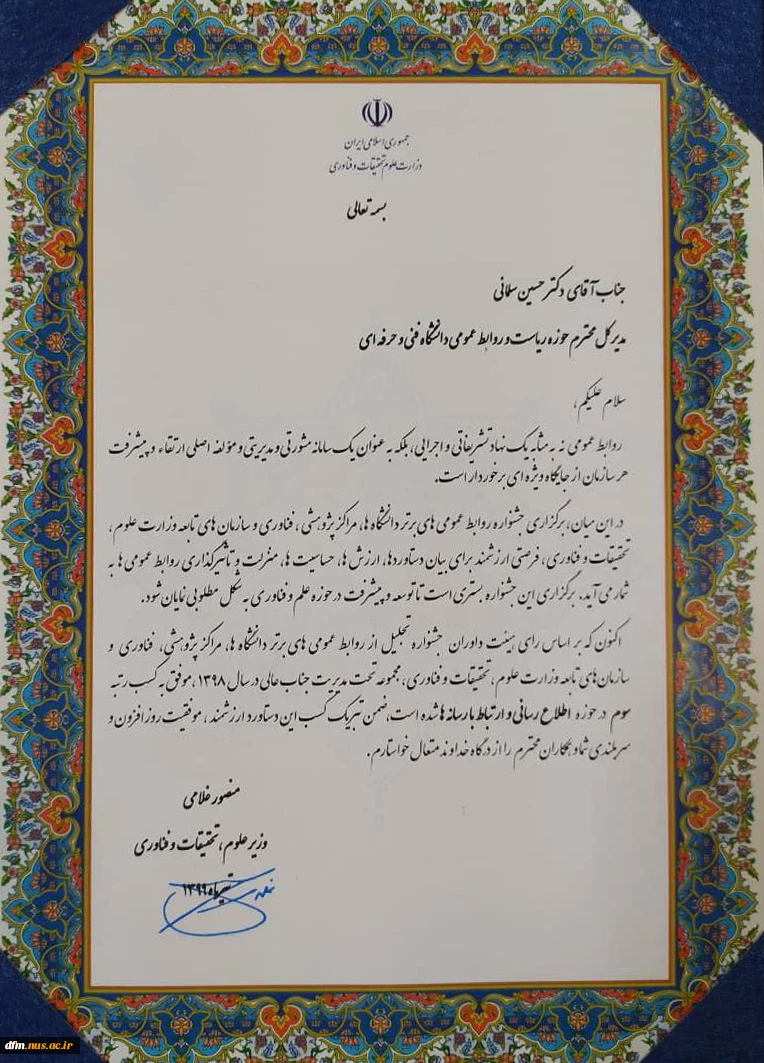 جمهوری اسلامی ایران
وزارت علوم تحقیقات و فناوری
بسمه تعالی
جناب آقای دکتر حسین سلمانی
مدیر کل محترم حوزه ریاست و روابط عمومی دانشگاه فنی و حرفه ای
سلام علیکم،
روابط عمومی نه به مثابه یک نهاد تشریفاتی و اجرایی، بلکه به عنوان یک سامانه مشورتی و مدیریتی و مؤلفه اصلی ارتقاء و پیشرفت
هر سازمان از جایگاه ویژه ای برخوردار است.
در این میان، برگزاری جشنواره روابط عمومی های برتر دانشگاه ها، مراکز پژوهشی، فناوری و سازمان های تابعه وزارت علوم،
تحقیقات و فناوری، فرصتی ارزشمند برای بیان دستاوردها، ارزش ها، حساسیت ها، منزلت و تأثیرگذاری روابط عمومی ها به
شمار می آید. برگزاری این جشنواره بستری است تا توسعه و پیشرفت در حوزه علم و فناوری به شکل مطلوبی نمایان شود.
اکنون که بر اساس رای هیئت داوران جشنواره تجلیل از روابط عمومی های برتر دانشگاه ها، مراکز پژوهشی، فناوری و
سازمان های تابعه وزارت علوم، تحقیقات و فناوری، مجموعه تحت مدیریت جناب عالی در سال ۱۳۹۸، موفق به کسب رتبه
سوم در حوزه اطلاع رسانی و ارتباط با رسانه ها شده است، ضمن تبریک کسب این دستاورد ارزشمند، موفقیت روزافزون و
سربلندی شما و همکاران محترم را از درگاه خداوند متعال خواستارم.
منصور غلامی
وزیر علوم، تحقیقات و فناوری
تیرماه ۱۳۹۹
dfm.nus.ac.ir